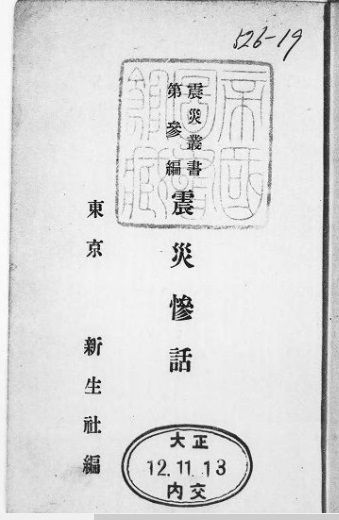 526-19
震災叢書
第參編
震災慘話
東京 新生社編
帝國圖書館藏
大正
12.11.13
内交